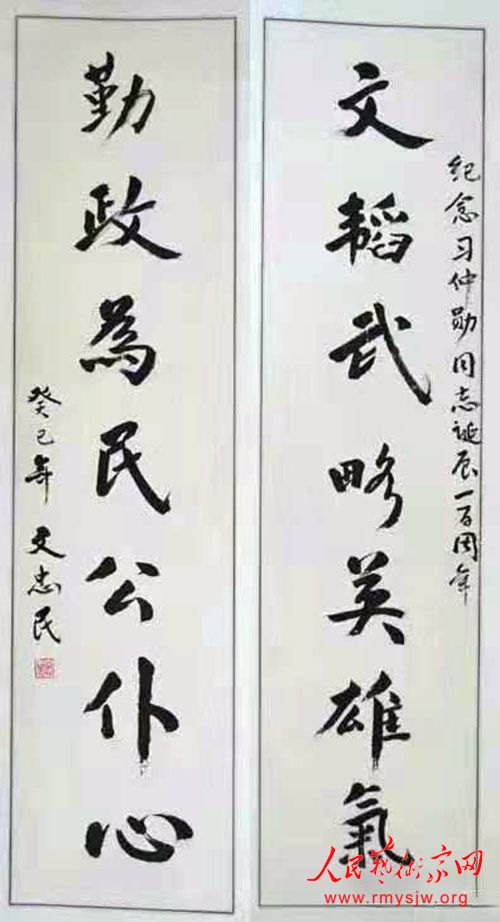 纪念习仲勋同志诞辰一百周年
文韬武略英雄氣
勤政為民公仆心
癸巳年 文忠民
人民藝術家网
www.rmysjw.org